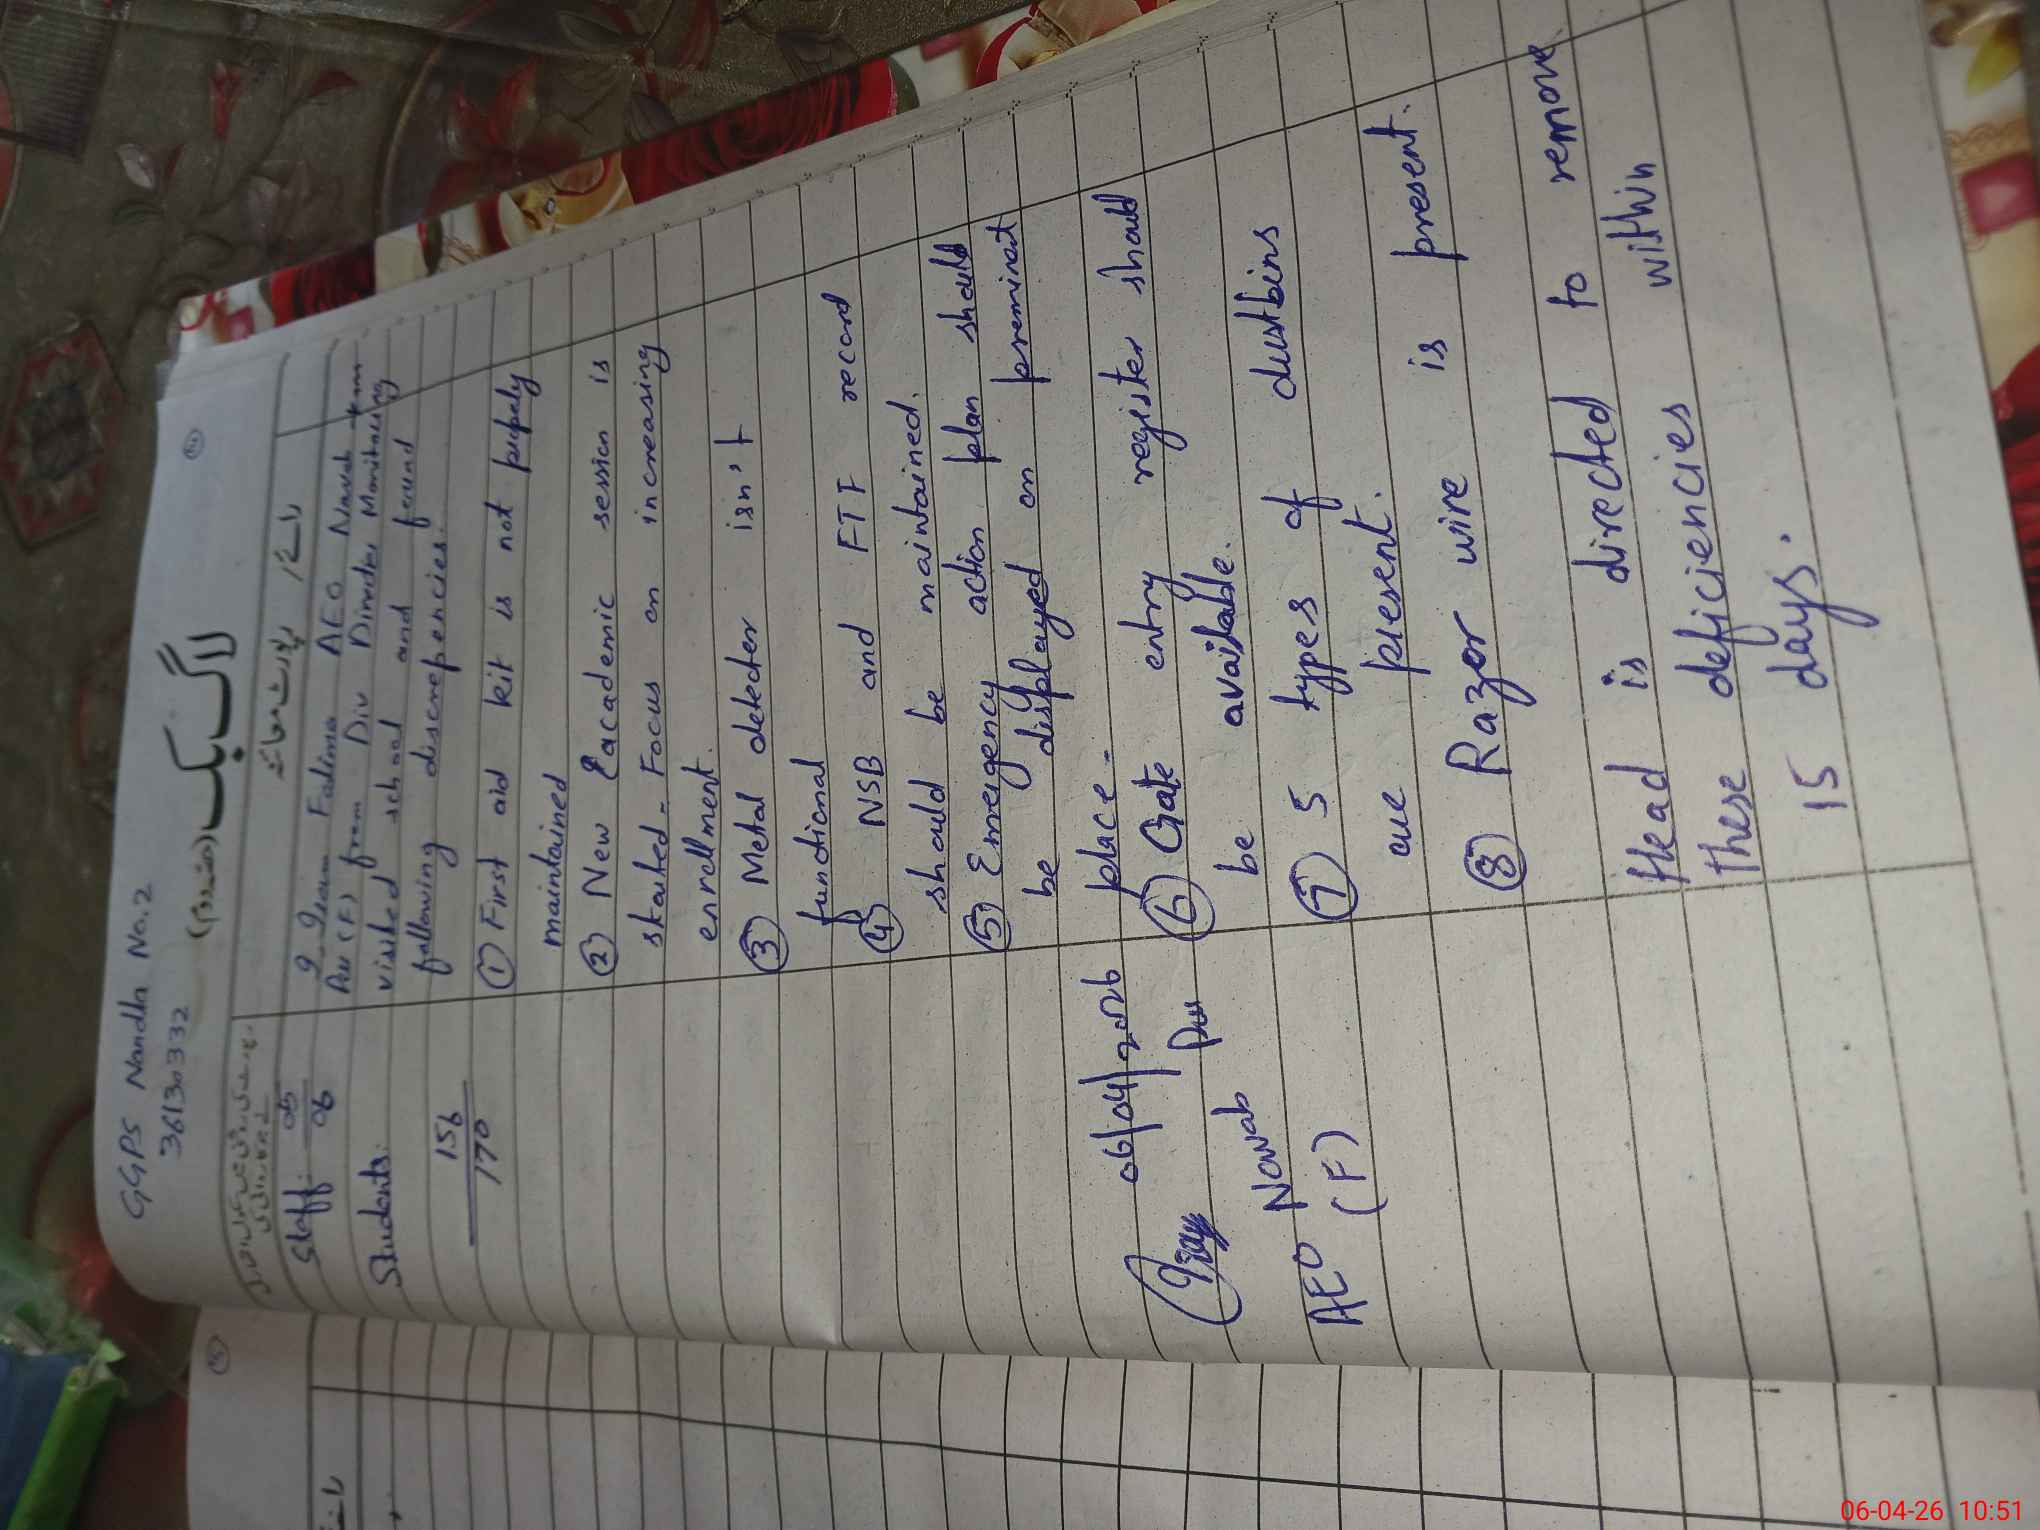 GGPS Nandla No.2
36130332
لاگ بک (حصہ دوم)
رپورٹ معائنہ / رائے
Staff: 05
06
Students:
156
170
I Iram Fatima AEO Nawab
Pur (F) from Div Director Monitoring team
visited school and found
following discrepencies.
① First aid kit is not properly
maintained
② New Eacademic session is
started - Focus on increasing
enrollment.
③ Metal detecter isn't
functional
④ NSB and FTF record
should be maintained.
⑤ Emergency action plan should
be displayed on preminent
place.
⑥ Gate entry register should
be available.
⑦ 5 types of dustbins
are present.
⑧ Razor wire is present.
Head is directed to remove
these deficiencies within
15 days.
06/04/2026
AEO Nawab Pur
(F)
06-04-26 10:51